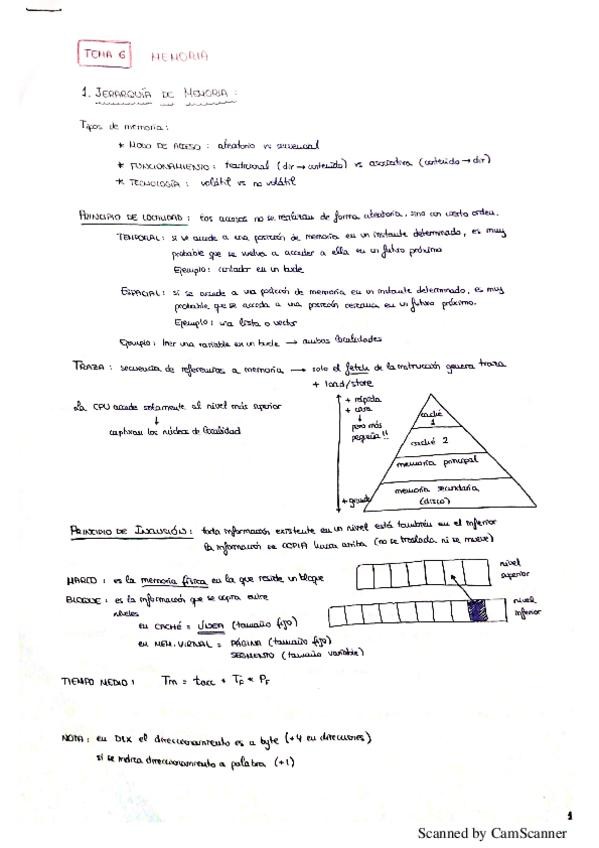 TEMA 6 MEMORIA
1. JERARQUÍA DE MEMORIA:
Tipos de memoria:
* MODO DE ACCESO: aleatorio vs secuencial
* FUNCIONAMIENTO: tradicional (dir → contenido) vs asociativa (contenido → dir)
* TECNOLOGÍA: volátil vs no volátil
PRINCIPIO DE LOCALIDAD: los accesos no se realizan de forma aleatoria, sino con cierto orden.
TEMPORAL: si se accede a una posición de memoria en un instante determinado, es muy
probable que se vuelva a acceder a ella en un futuro próximo
Ejemplo: contador en un bucle
ESPACIAL: si se accede a una posición de memoria en un instante determinado, es muy
probable que se acceda a una posición cercana en un futuro próximo.
Ejemplo: una lista o vector
Ejemplo: leer una variable en un bucle → ambas localidades
TRAZA: secuencia de referencias a memoria → solo el fetch de la instrucción genera traza
+ load/store
La CPU accede solamente al nivel más superior
↓
capturan los núcleos de localidad
+ rápida
+ cara
↓
pero más
pequeña!!
+ grande
caché
1
caché 2
memoria principal
memoria secundaria
(disco)
PRINCIPIO DE INCLUSIÓN: toda información existente en un nivel está también en el inferior
la información se COPIA hacia arriba (no se traslada ni se mueve)
MARCO: es la memoria física en la que reside un bloque
BLOQUE: es la información que se copia entre
niveles
en CACHÉ = LÍNEA (tamaño fijo)
en MEM. VIRTUAL = PÁGINA (tamaño fijo)
SEGMENTO (tamaño variable)
nivel
superior
nivel
inferior
TIEMPO MEDIO: Tm = tacc + TF * PF
NOTA: en DLX el direccionamiento es a byte (+4 en direcciones)
si se indica direccionamiento a palabra (+1)
1
Scanned by CamScanner